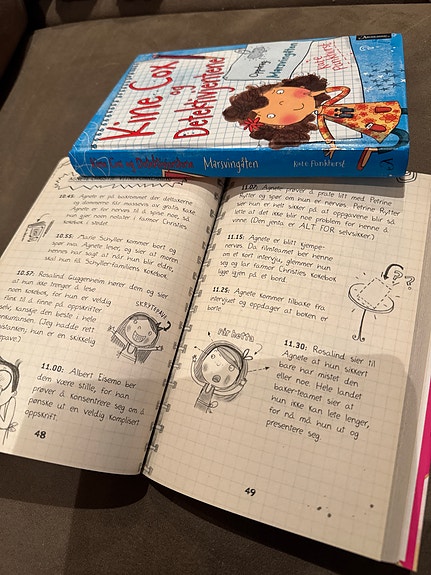 Kine Cox
og
Detektivjentene
Oppdrag
Marsvingåten
Kate
Pankhurst
Kine Cox og Detektivjentene Marsvingåten Kate Pankhurst
10.45: Agnete er på bakrommet der deltakerne
og dommerne får marsvinos og gratis kaffe.
Agnete er for nervøs til å spise noe, så
hun gjør noen notater i farmor Christies
kokebok i stedet.
10.55: Marie Schyller kommer bort og
spør hva Agnete leser, og sier at moren
hennes har sagt at når hun blir eldre,
skal hun få Schyller-familiens kokebok.
10.57: Rosalind Guggenheim hører dem og sier
at hun ikke trenger å lese
noen kokebok, for hun er veldig
flink til å finne på oppskrifter
selv, kanskje den beste i hele
konkurransen. (Jeg hadde rett
hun er en skikkelig
SKRYTEPAVE!
11.00: Albert Eisemo ber
dem være stille, for han
prøver å konsentrere seg om å
pønske ut en veldig komplisert
oppskrift.
48
11.07: Agnete prøver å prate litt med Petrine
Rytter og spør om hun er nervøs. Petrine Rytter
sier hun er helt sikker på at oppgavene blir så
lette at det ikke blir noe problem for henne å
vinne. (Den jenta er ALT FOR selvsikker.)
11.15: Agnete er blitt kjempe-
nervøs. Da filmteamet ber henne
om et kort intervju, glemmer hun
seg og lar farmor Christies kokebok
ligge igjen på et bord.
???
11.25: Agnete kommer tilbake fra
intervjuet og oppdager at boken er
borte.
Mir hetti
11.30: Rosalind sier til
Agnete at hun sikkert
bare har mistet den
eller noe. Hele landet
baker-teamet sier at
hun ikke kan lete lenger,
for nå må hun ut og
presentere seg.
49